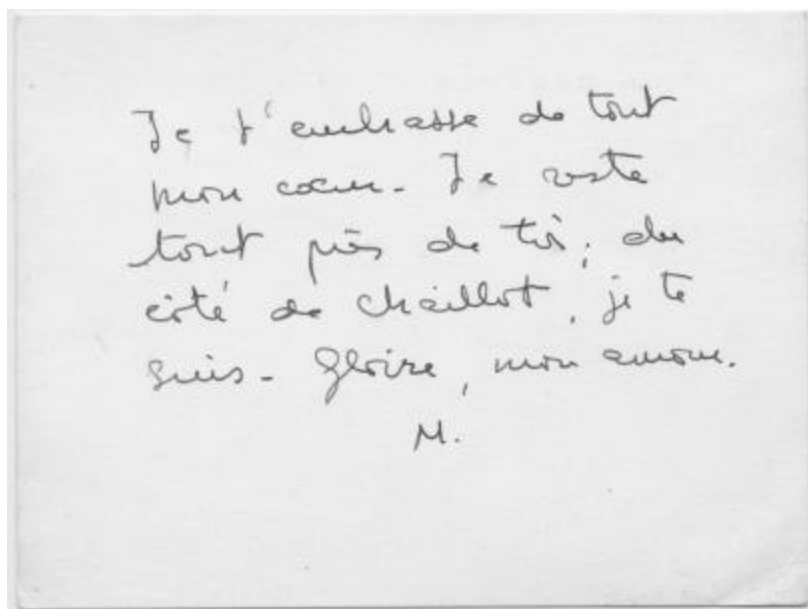 Je t'embrasse de tout
mon cœur. Je reste
tout près de toi ; du
côté de Chaillot, je te
suis. Gloire, mon amour.
M.